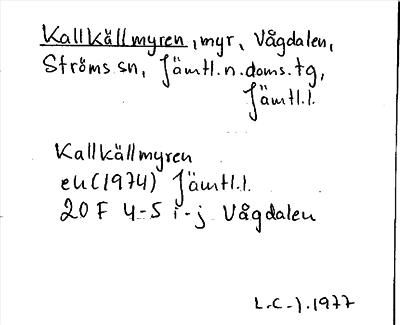 Kallkällmyren, myr, Vågdalen,
Ströms sn, Jämtl. n. doms. tg,
Jämtl.l.
Kallkällmyren
ek (1974) Jämtl.l.
20 F 4-5 i-j Vågdalen
L.C-J. 1977